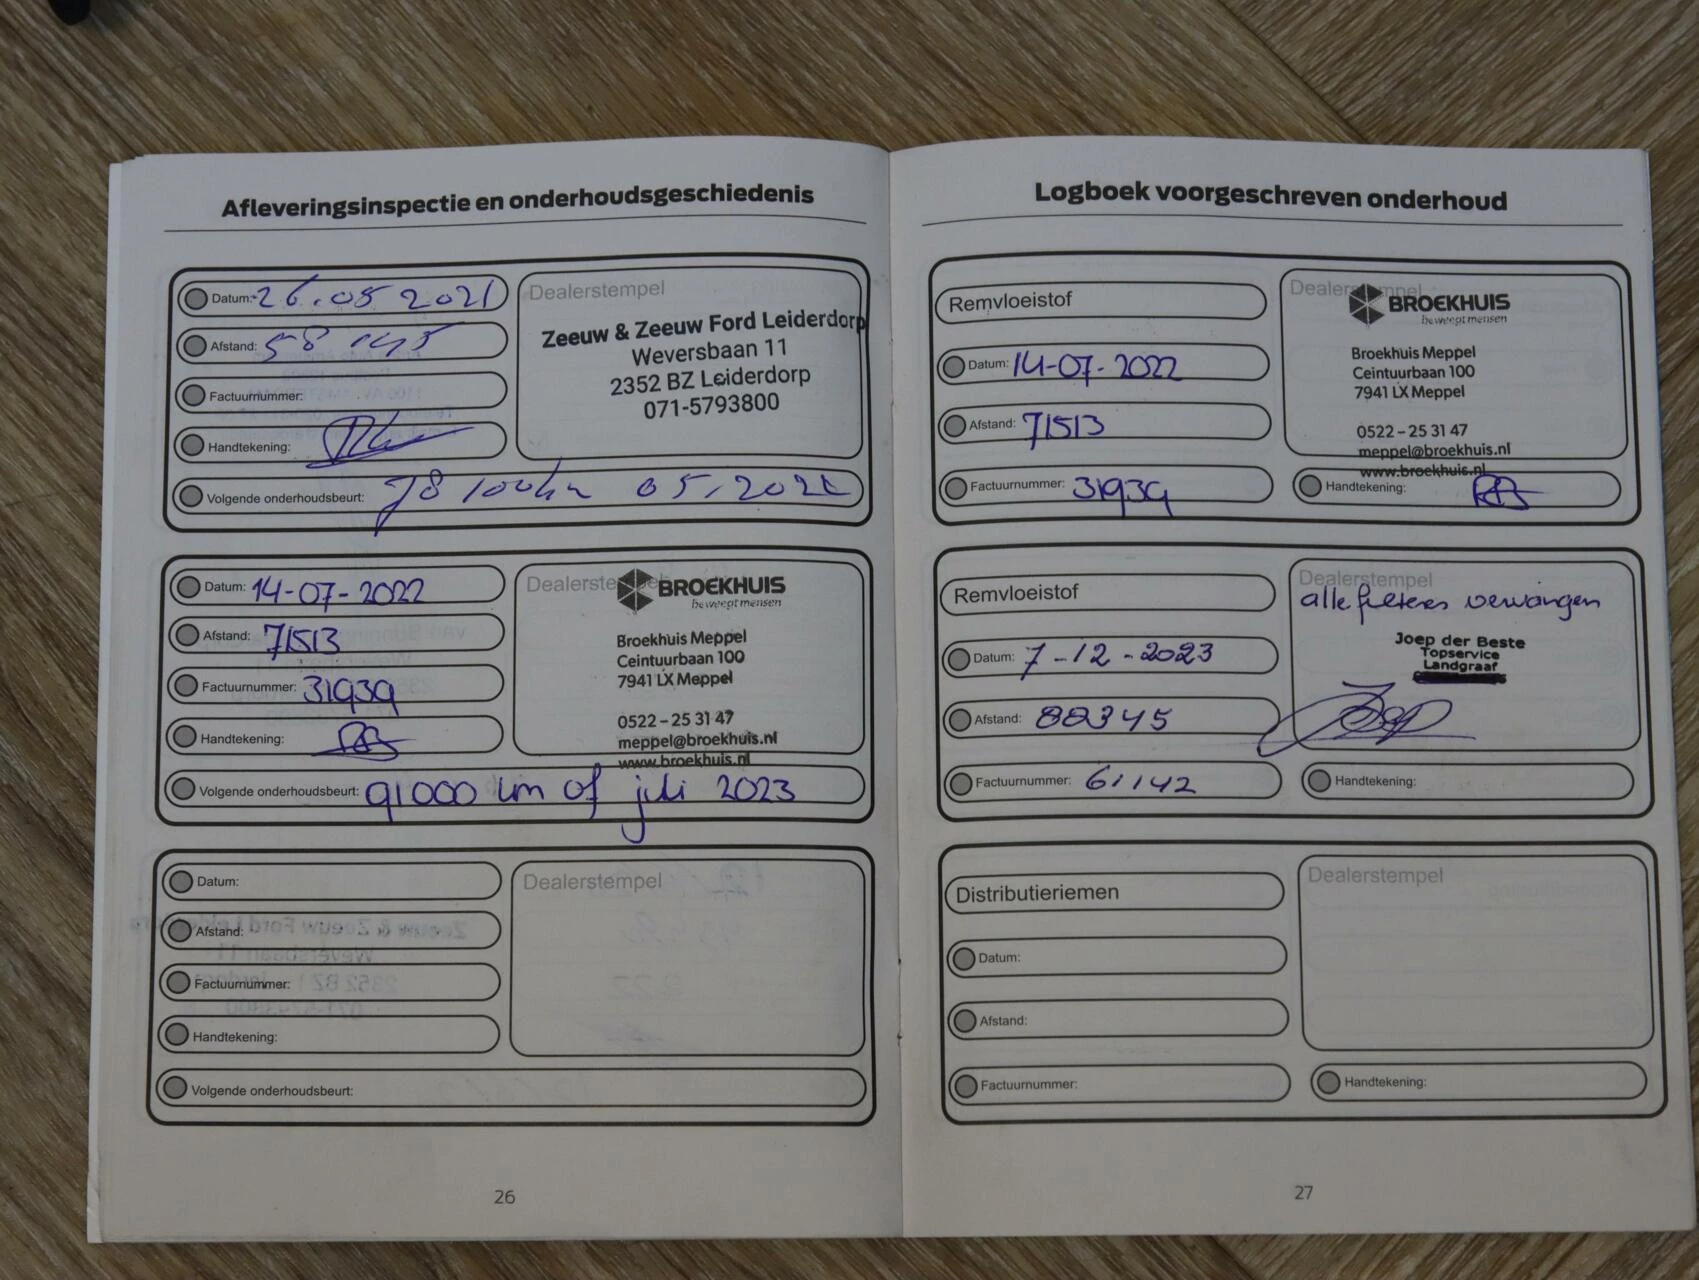 Afleveringsinspectie en onderhoudsgeschiedenis
Datum: 26.05 2021
Afstand: 58 145
Factuurnummer:
Handtekening:
Dealerstempel
Zeeuw & Zeeuw Ford Leiderdorp
Weversbaan 11
2352 BZ Leiderdorp
071-5793800
Volgende onderhoudsbeurt: 78 100km 05.2022
Datum: 14-07-2022
Afstand: 71513
Factuurnummer: 31939
Handtekening:
Dealerstempel
BROEKHUIS
beweegt mensen
Broekhuis Meppel
Ceintuurbaan 100
7941 LX Meppel
0522-25 31 47
meppel@broekhuis.nl
www.broekhuis.nl
Volgende onderhoudsbeurt: 91000 km of juli 2023
Datum:
Afstand:
Factuurnummer:
Handtekening:
Dealerstempel
Volgende onderhoudsbeurt:
26
Logboek voorgeschreven onderhoud
Remvloeistof
Datum: 14-07-2022
Afstand: 71513
Factuurnummer: 31939
Dealerstempel
BROEKHUIS
beweegt mensen
Broekhuis Meppel
Ceintuurbaan 100
7941 LX Meppel
0522-25 31 47
meppel@broekhuis.nl
www.broekhuis.nl
Handtekening:
Remvloeistof
Datum: 7-12-2023
Afstand: 88345
Factuurnummer: 61142
Dealerstempel
alle filteres vervangen
Joep der Beste
Topservice
Landgraaf
Handtekening:
Distributieriemen
Datum:
Afstand:
Factuurnummer:
Dealerstempel
Handtekening:
27